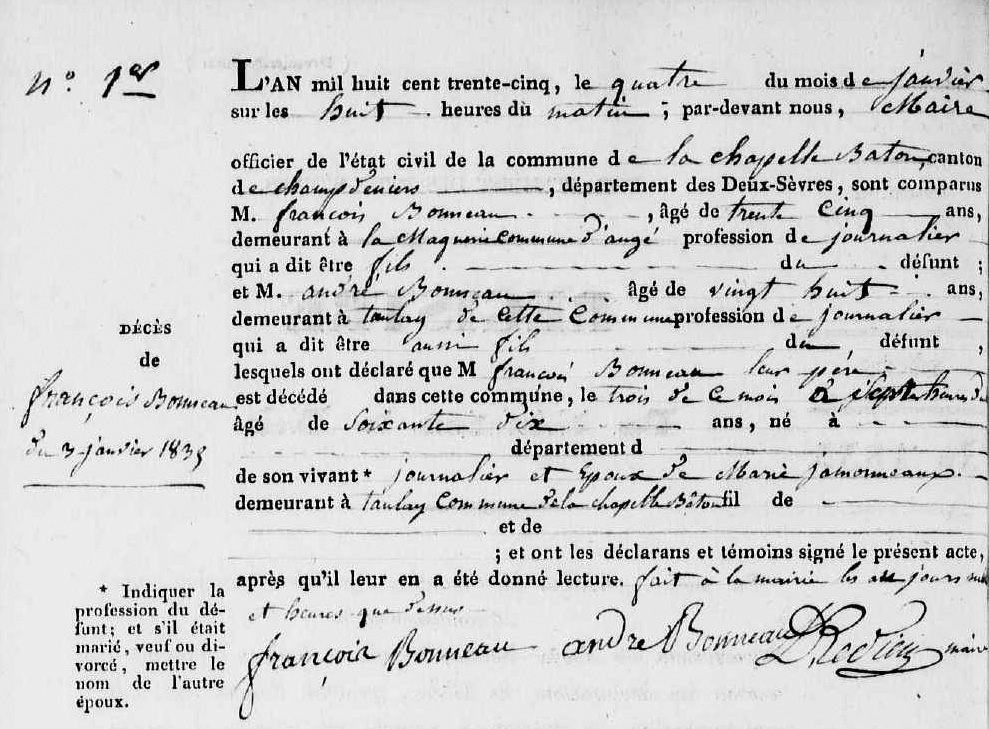 n.° 1er
L'AN mil huit cent trente-cinq, le quatre du mois de janvier
sur les huit heures du matin ; par-devant nous, Maire
officier de l'état civil de la commune de la chapelle Baton, canton
de champdeniers, département des Deux-Sèvres, sont comparus
M. françois Bonneau, âgé de trente cinq ans,
demeurant à la Maquerie commune d'augé profession de journalier
qui a dit être fils du défunt ;
et M. andré Bonneau âgé de vingt huit ans,
demeurant à taulay de cette Commune profession de journalier
qui a dit être aussi fils du défunt ,
lesquels ont déclaré que M françois Bonneau leur père
est décédé dans cette commune, le trois de ce mois a sept heures du
âgé de Soixante dix ans, né à
département d
de son vivant * journalier et Epoux de Marie jamonneaux
demeurant à taulay Commune de la chapelle Bâton fil de
et de
; et ont les déclarans et témoins signé le présent acte,
après qu'il leur en a été donné lecture. fait à la mairie les jours mois
et heures que dessus
françois Bonneau andré Bonneau maire
DÉCÈS
de
françois Bonneau
du 3 janvier 1835
* Indiquer la
profession du dé-
funt; et s'il était
marié, veuf ou di-
vorcé, mettre le
nom de l'autre
époux.